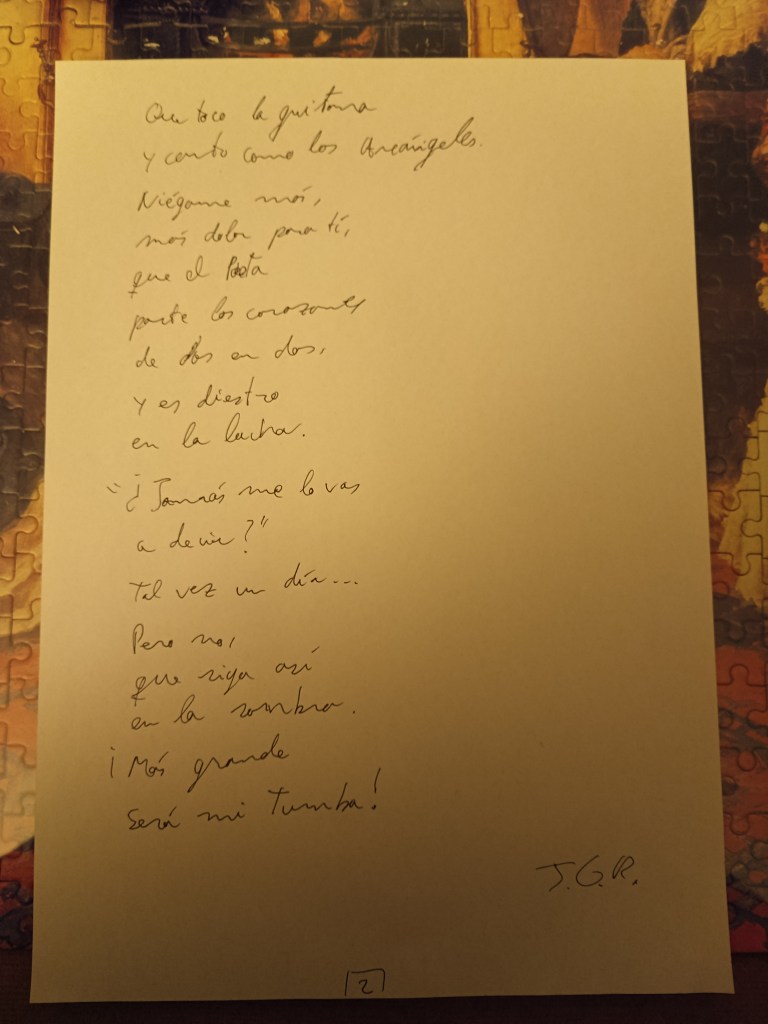 Que toco la guitarra
y canto como los Arcángeles.
Niégame más,
más dolor para tí,
que el Poeta
parte los corazones
de dos en dos,
y es diestro
en la lucha.
"¿Jamás me lo vas
a decir?"
Tal vez un día...
Pero no,
que siga así
en la sombra.
¡Más grande
será mi Tumba!
J.G.R.
2